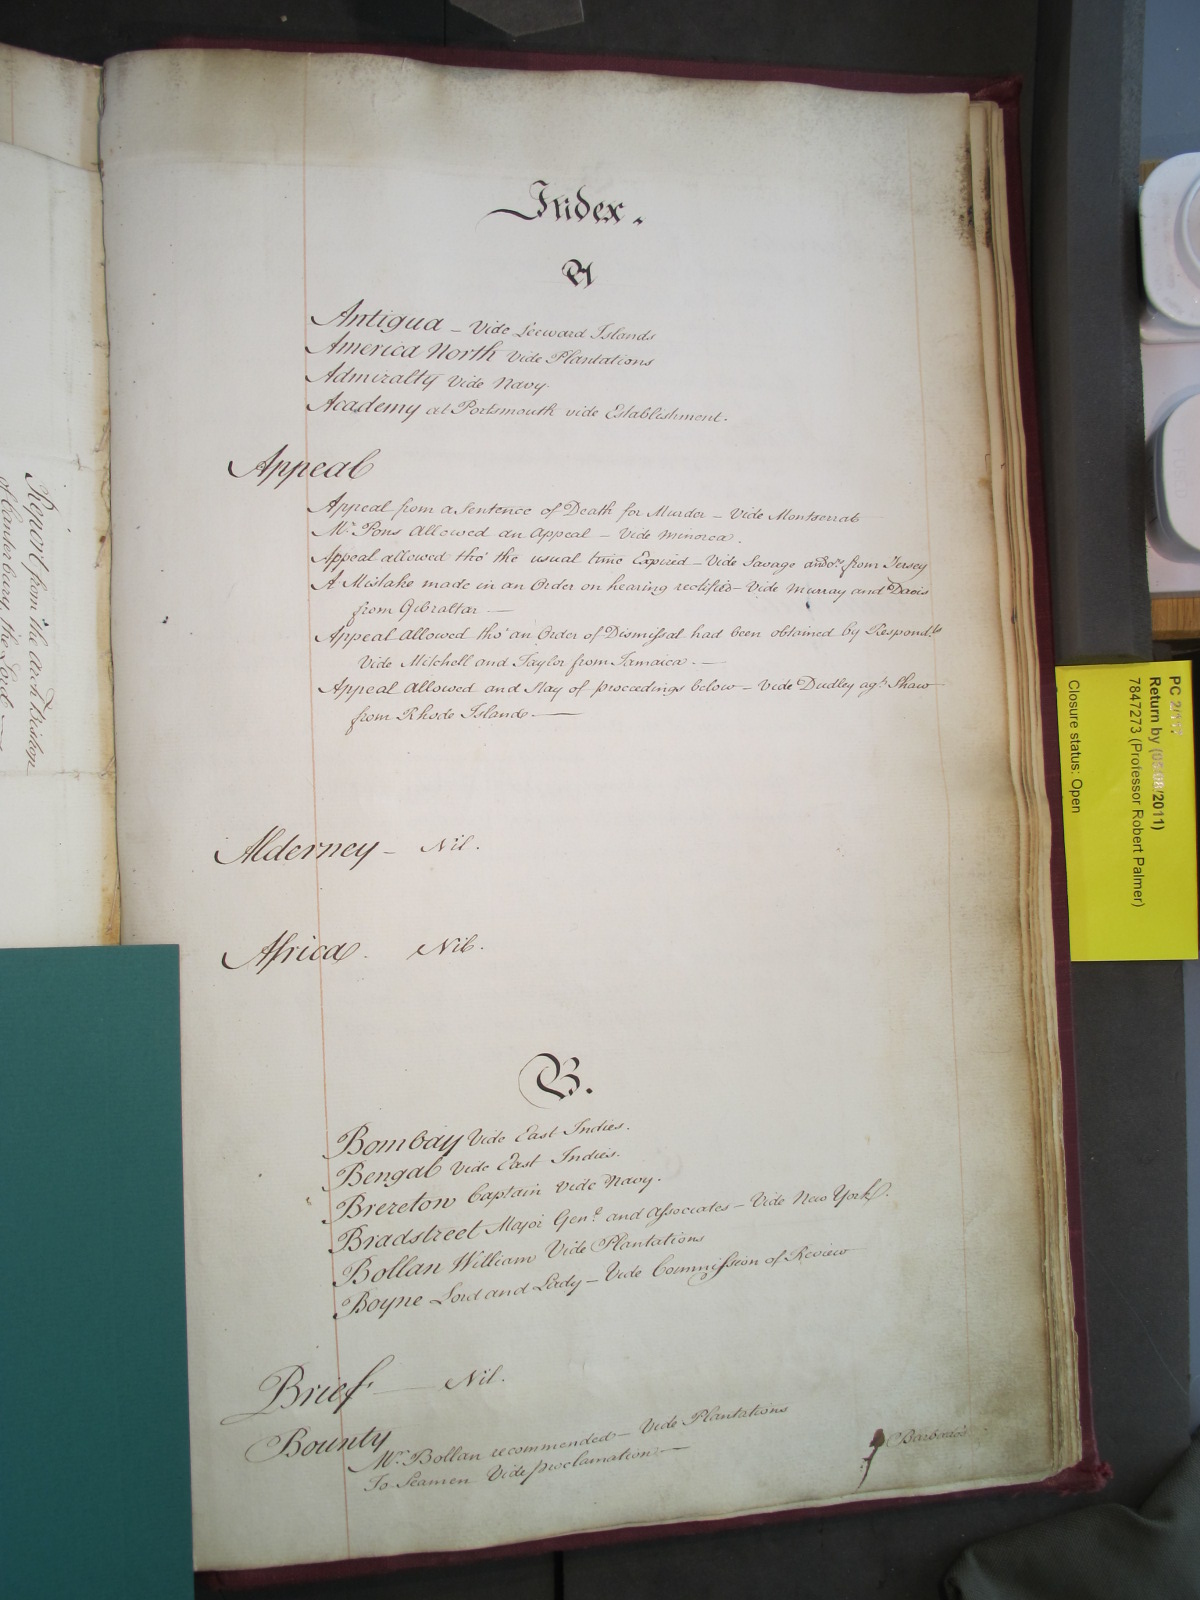 Index.
A
Antigua – Vide Leeward Islands
America North Vide Plantations
Admiralty Vide Navy.
Academy at Portsmouth vide Establishment.
Appeal
Appeal from a Sentence of Death for Murder – Vide Montserrat
Mr. Pons Allowed an Appeal – Vide Minorca.
Appeal allowed tho' the usual time Expired – Vide Savage and ors. from Jersey
A Mistake made in an Order on hearing rectified – Vide Murray and Davis
from Gibraltar —
Appeal Allowed tho' an Order of Dismissal had been obtained by Respond.ts
Vide Mitchell and Taylor from Jamaica. —
Appeal Allowed and Stay of proceedings below – Vide Dudley agt. Shaw
from Rhode Island —
Alderney – Nil.
Africa. Nil.
B.
Bombay Vide East Indies.
Bengal Vide East Indies.
Brereton Captain Vide Navy.
Bradstreet Major Genl. and Associates – Vide New York.
Bollan William Vide Plantations
Boyne Lord and Lady – Vide Commission of Review
Brief — Nil.
Bounty
Mr. Bollan recommended – Vide Plantations
To Seamen Vide proclamation —
Barbados
Report from the
of Canterbury, the Lord
PC 2/117
Return by (05/08/2011)
7847273 (Professor Robert Palmer)
Closure status: Open